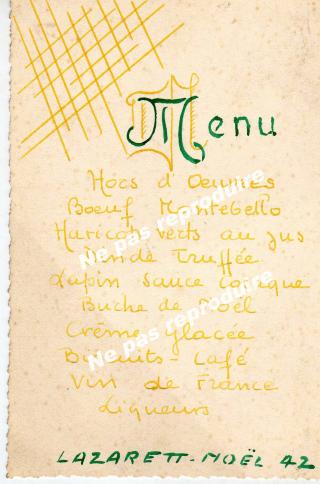 Menu
Hors d'Oeuvres
Boeuf Montebello
Haricots verts au jus
Dinde Truffée
Lapin sauce
Buche de Noël
Crème glacée
Biscuits - Café
Vin de France
Liqueurs
LAZARETT-NOËL 42
Ne pas reproduire
Ne pas reproduire